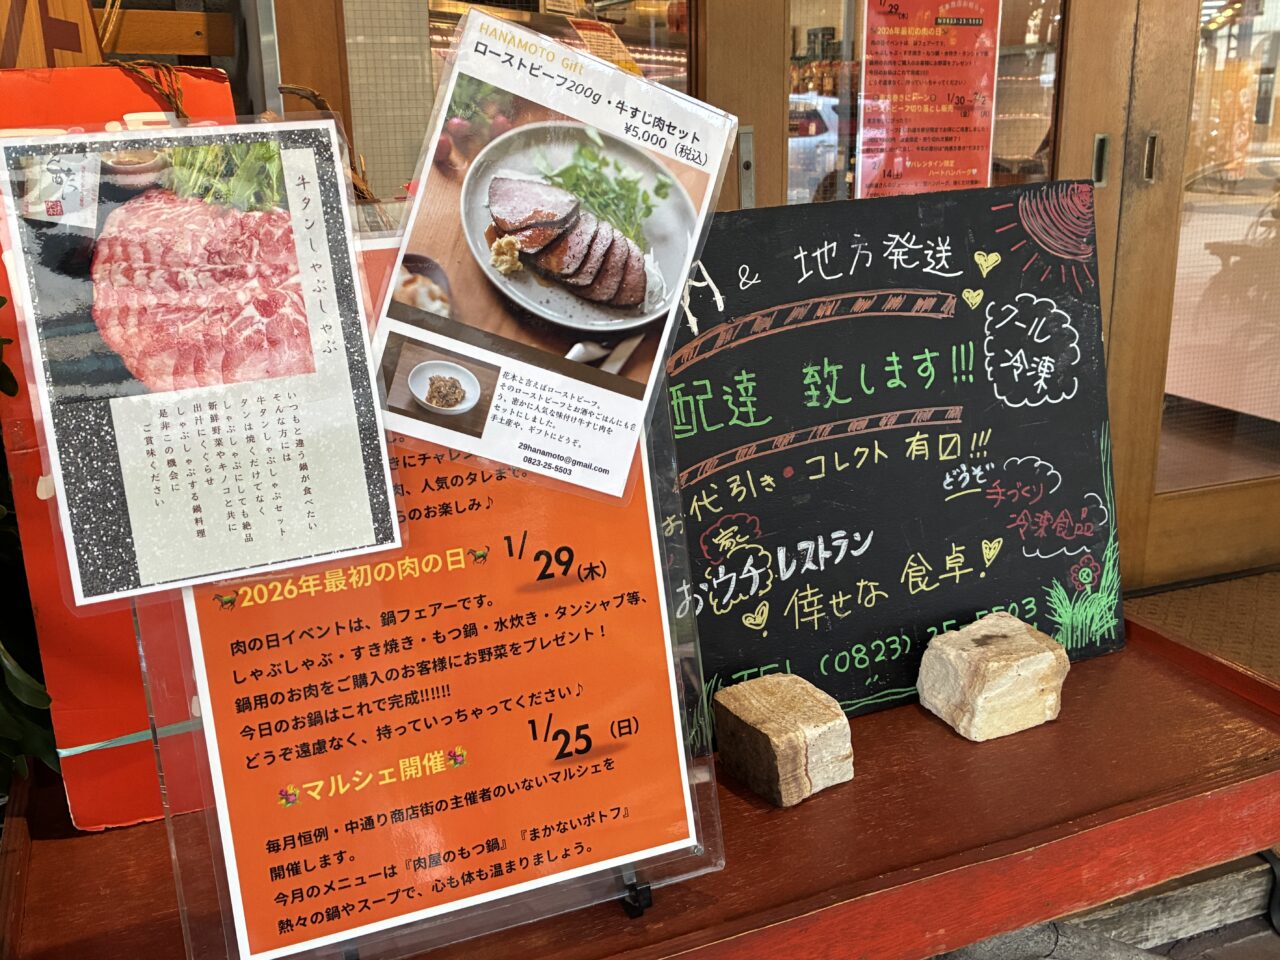 牛タンしゃぶしゃぶ
いつもと違う鍋が食べたい
そんな方には
牛タンしゃぶしゃぶセット
タンは焼くだけでなく
しゃぶしゃぶにしても絶品
新鮮野菜やキノコと共に
出汁にくぐらせ
しゃぶしゃぶする鍋料理
是非この機会に
ご賞味ください
HANAMOTO Gift
ローストビーフ200g・牛すじ肉セット
¥5,000（税込）
花本と言えばローストビーフ。
そのローストビーフとお酒やごはんにも合
う、密かに人気な味付け牛すじ肉を
セットにしました。
手土産や、ギフトにどうぞ。
29hanamoto@gmail.com
0823-25-5503
きにチャレン
肉、人気のタレまで。
らのお楽しみ♪
2026年最初の肉の日 1/29(木)
肉の日イベントは、鍋フェアーです。
しゃぶしゃぶ・すき焼き・もつ鍋・水炊き・タンシャブ等、
鍋用のお肉をご購入のお客様にお野菜をプレゼント！
今日のお鍋はこれで完成!!!!!!
どうぞ遠慮なく、持っていっちゃってください♪
マルシェ開催 1/25（日）
毎月恒例・中通り商店街の主催者のいないマルシェを
開催します。
今月のメニューは『肉屋のもつ鍋』『まかないポトフ』
熱々の鍋やスープで、心も体も温まりましょう。
& 地方発送
配達 致します!!!
クール
冷凍
代引き・コレクト 有り!!!
どうぞ
手づくり
冷凍食品
お家
おウチレストラン
倖せな 食卓
TEL (0823) 25-5503
1/29(木)
0823-25-5503
2026年最初の肉の日
肉の日イベントは、鍋フェアーです。
1/30
(金)
(月)
バレンタイン限定
ハートハンバーグ
14(土)